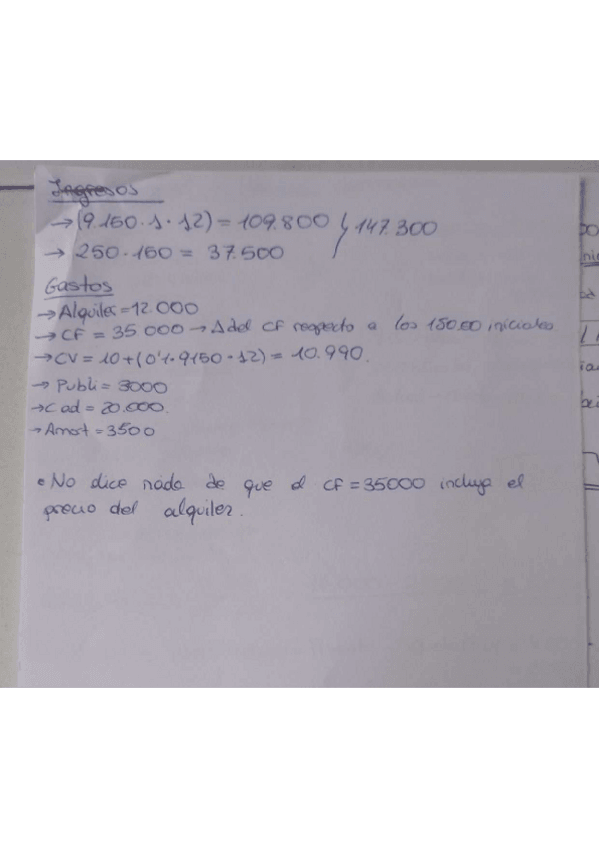 Ingresos
→ (9.150 · 1 · 12) = 109.800
147.300
→ 250 · 150 = 37.500
Gastos
→ Alquiler = 12.000
→ CF = 35 000 → Δ del CF respecto a los 15000 iniciales
→ CV = 10 + (0'1 · 9150 · 12) = 10.990.
→ Publi = 3000
→ C ad = 20.000.
→ Amort = 3500
• No dice nada de que el CF = 35000 incluya el
precio del alquiler.